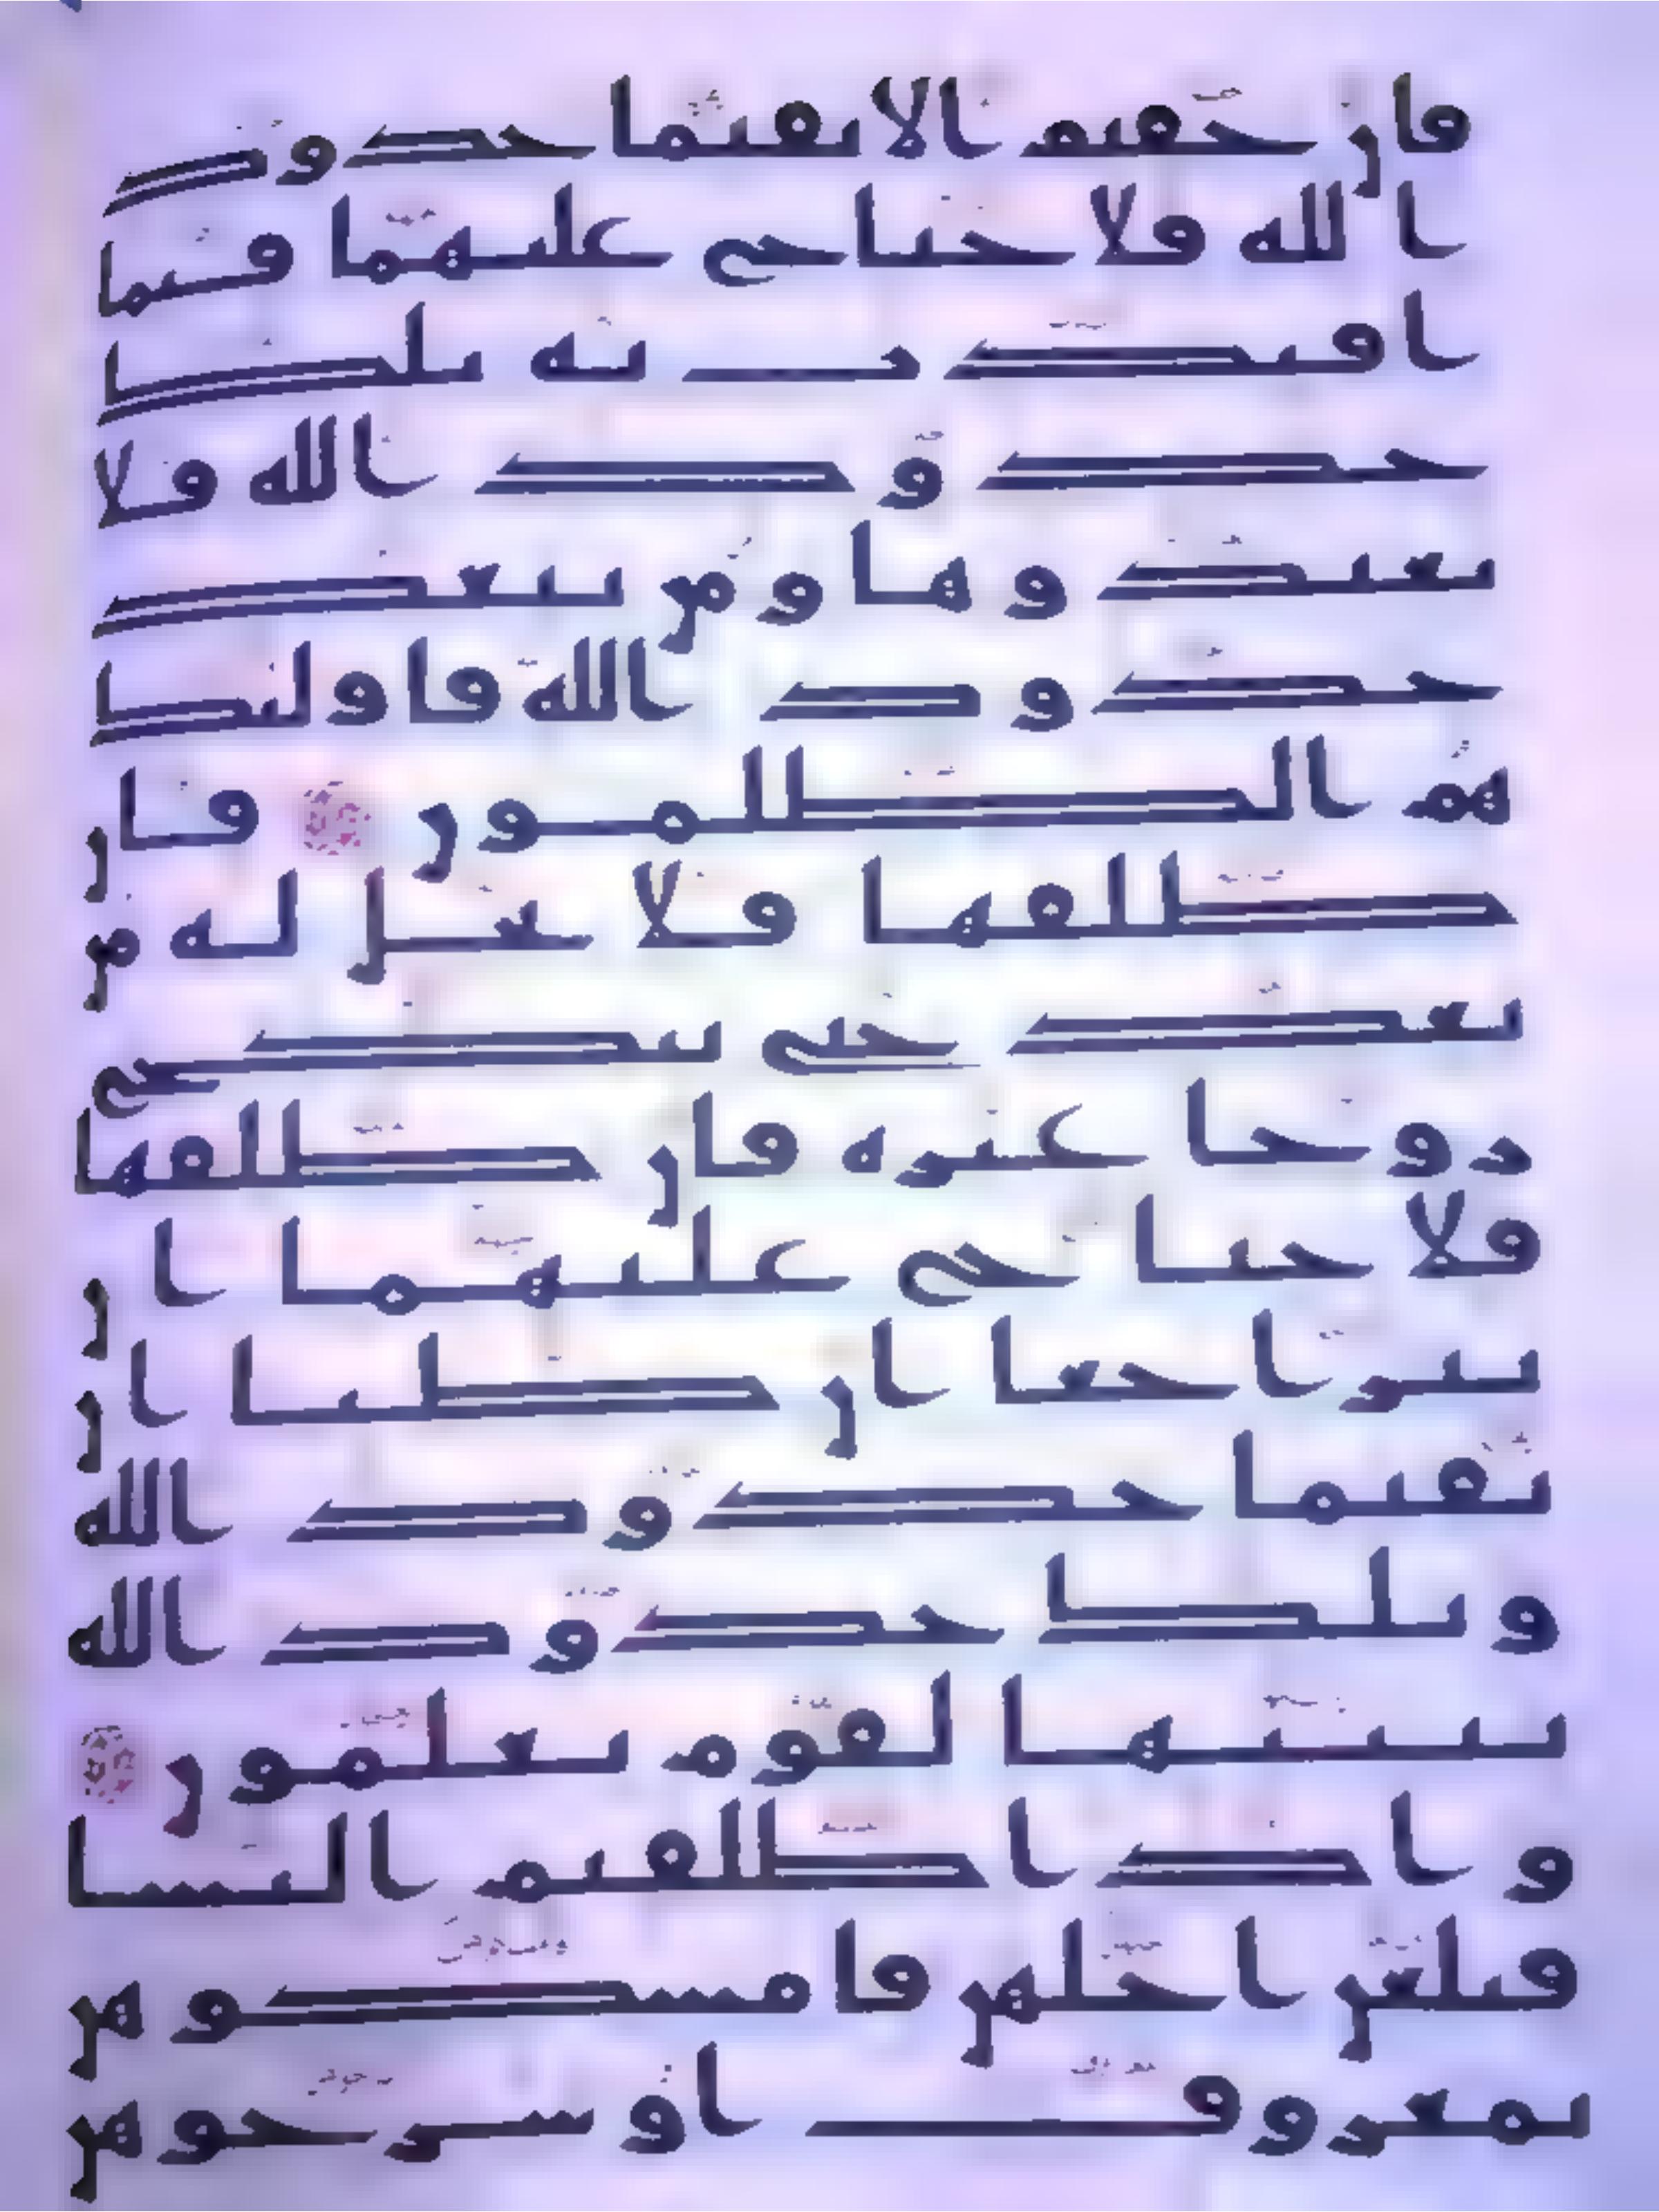 فان خفتم الا يقيما حدود
الله فلا جناح عليهما فيما
افتدت به تلك
حدود الله فلا
تعتدوها ومن يتعد
حدود الله فاولئك
هم الظلمون فان
طلقها فلا تحل له من
بعد حتى تنكح
زوجا غيره فان طلقها
فلا جناح عليهما ان
يتراجعا ان ظنا ان
يقيما حدود الله
وتلك حدود الله
يبينها لقوم يعلمون
واذا طلقتم النسا
فبلغن اجلهن فامسكوهن
بمعروف او سرحوهن